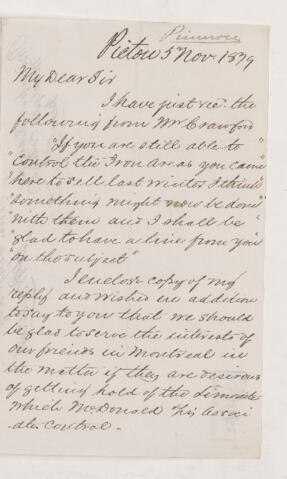 Primrose
Pictou 5 Nov. 1879
My Dear Sir
I have just rec. the
following from Mr Crawford
"If you are still able to"
"control the Iron Areas you came"
"here to sell last winter I think"
"something might now be done"
"with them and I shall be"
"glad to have a line from you"
"on the subject"
I enclose copy of my
reply and wished in addition
to say to you that we should
be glad to serve the interests of
our friends in Montreal in
the matter if they are desirous
of getting hold of the Limonite
which McDonald & his associ
ates control -